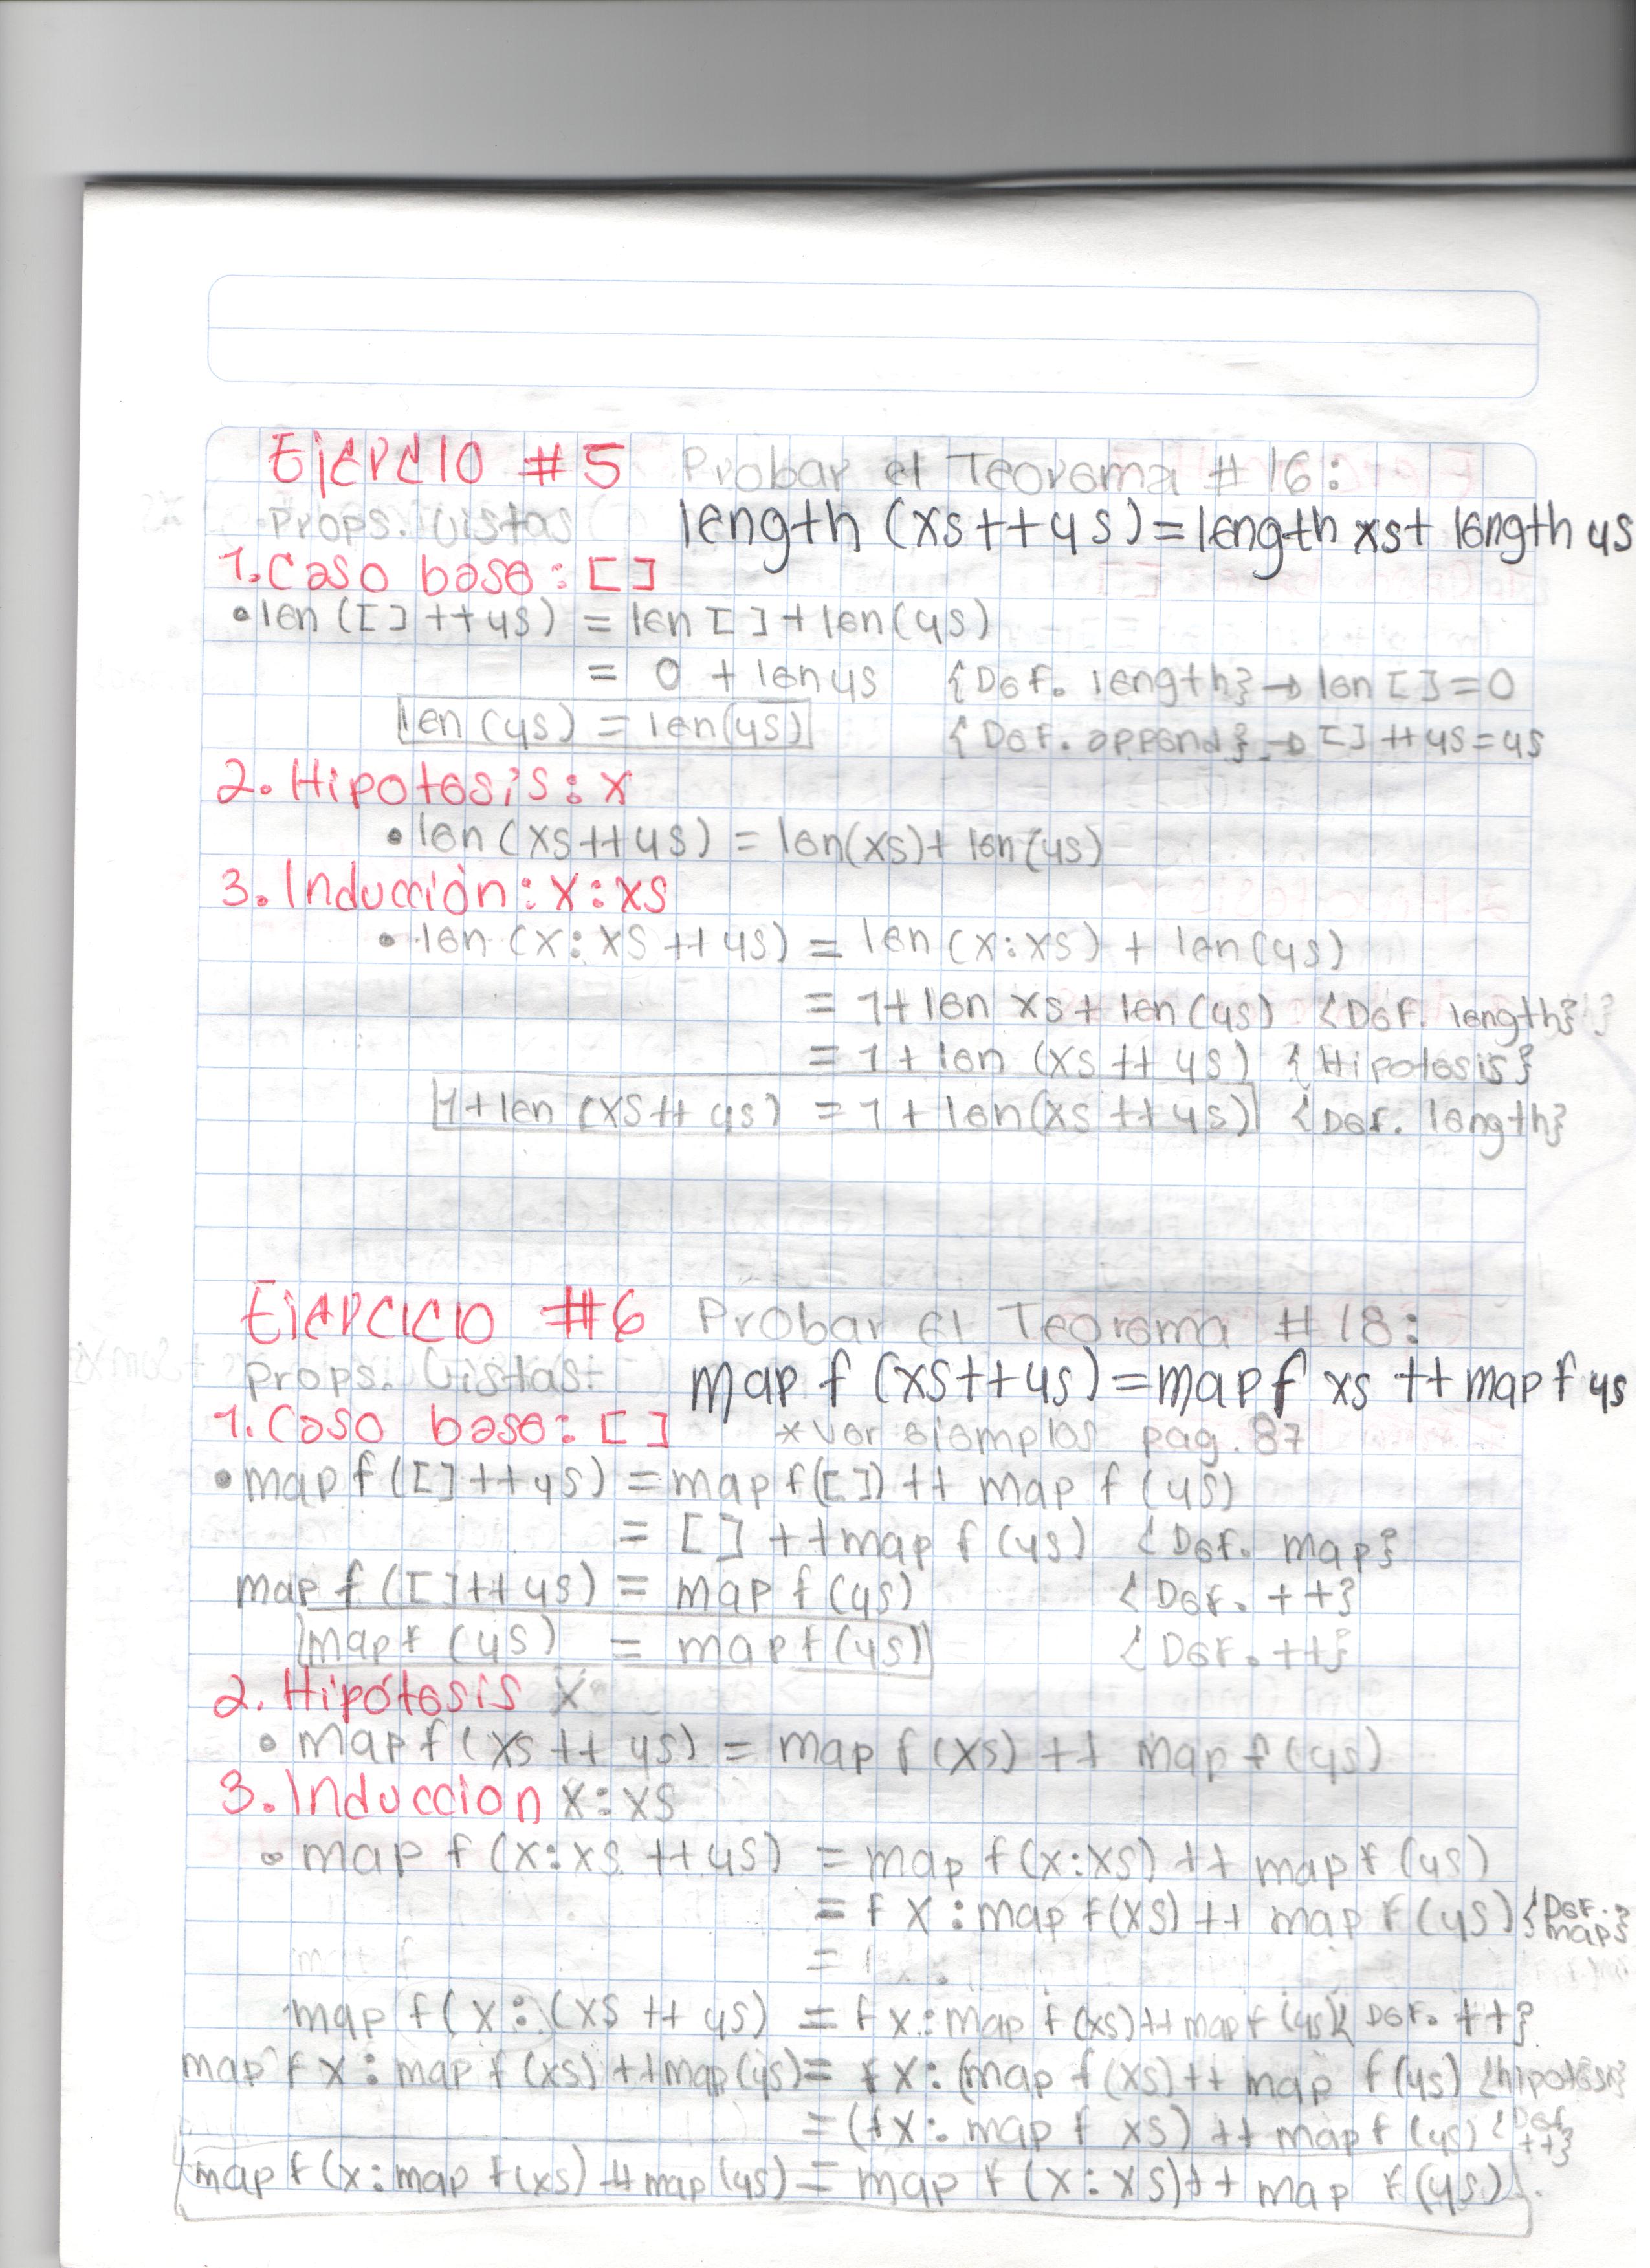 Ejercicio #5 Probar el Teorema #16:
Props. Vistas length (xs++ys)=length xs+ length ys
1.Caso base: []
•len ([] ++ys) = len []+len(ys)
= 0 + len ys {Def. length}→ len []=0
len (ys) = len(ys) {Def. append}→ []++ys=ys
2. Hipotesis: x
•len (xs++ys) = len(xs)+ len(ys)
3. Inducción: x:xs
•len (x:xs ++ ys) = len (x:xs) + len(ys)
= 1+len xs+ len (ys) {Def. length}
= 1+len (xs ++ ys) {Hipotesis}
1+len (xs++ ys) = 1+len(xs ++ ys) {Def. length}
Ejercicio #6 Probar el Teorema #18:
Props. Vistas: map f (xs++ys)=map f xs ++ map f ys
1. Caso base: [] *ver ejemplos pag. 87
•map f ([]++ys) = map f([]) ++ map f (ys)
= [] ++map f (ys) {Def. map}
map f ([]++ys) = map f(ys) {Def. ++}
map f (ys) = map f(ys) {Def. ++}
2. Hipótesis x
•map f (xs ++ ys) = map f (xs) ++ map f(ys)
3. Induccion x:xs
•map f (x:xs ++ys) = map f(x:xs) ++ map f (ys)
= f x : map f(xs) ++ map f (ys) {Def. map}
=
map f(x:(xs ++ ys) = f x: map f(xs)++map f (ys){Def. ++}
map f x : map f(xs)++map(ys)= f x: (map f(xs)++ map f(ys) {hipotesis}
=(f x: map f xs) ++ map f (ys) {Def ++}
map f(x:map f(xs) ++ map (ys) = map f (x:xs)++ map f(ys).